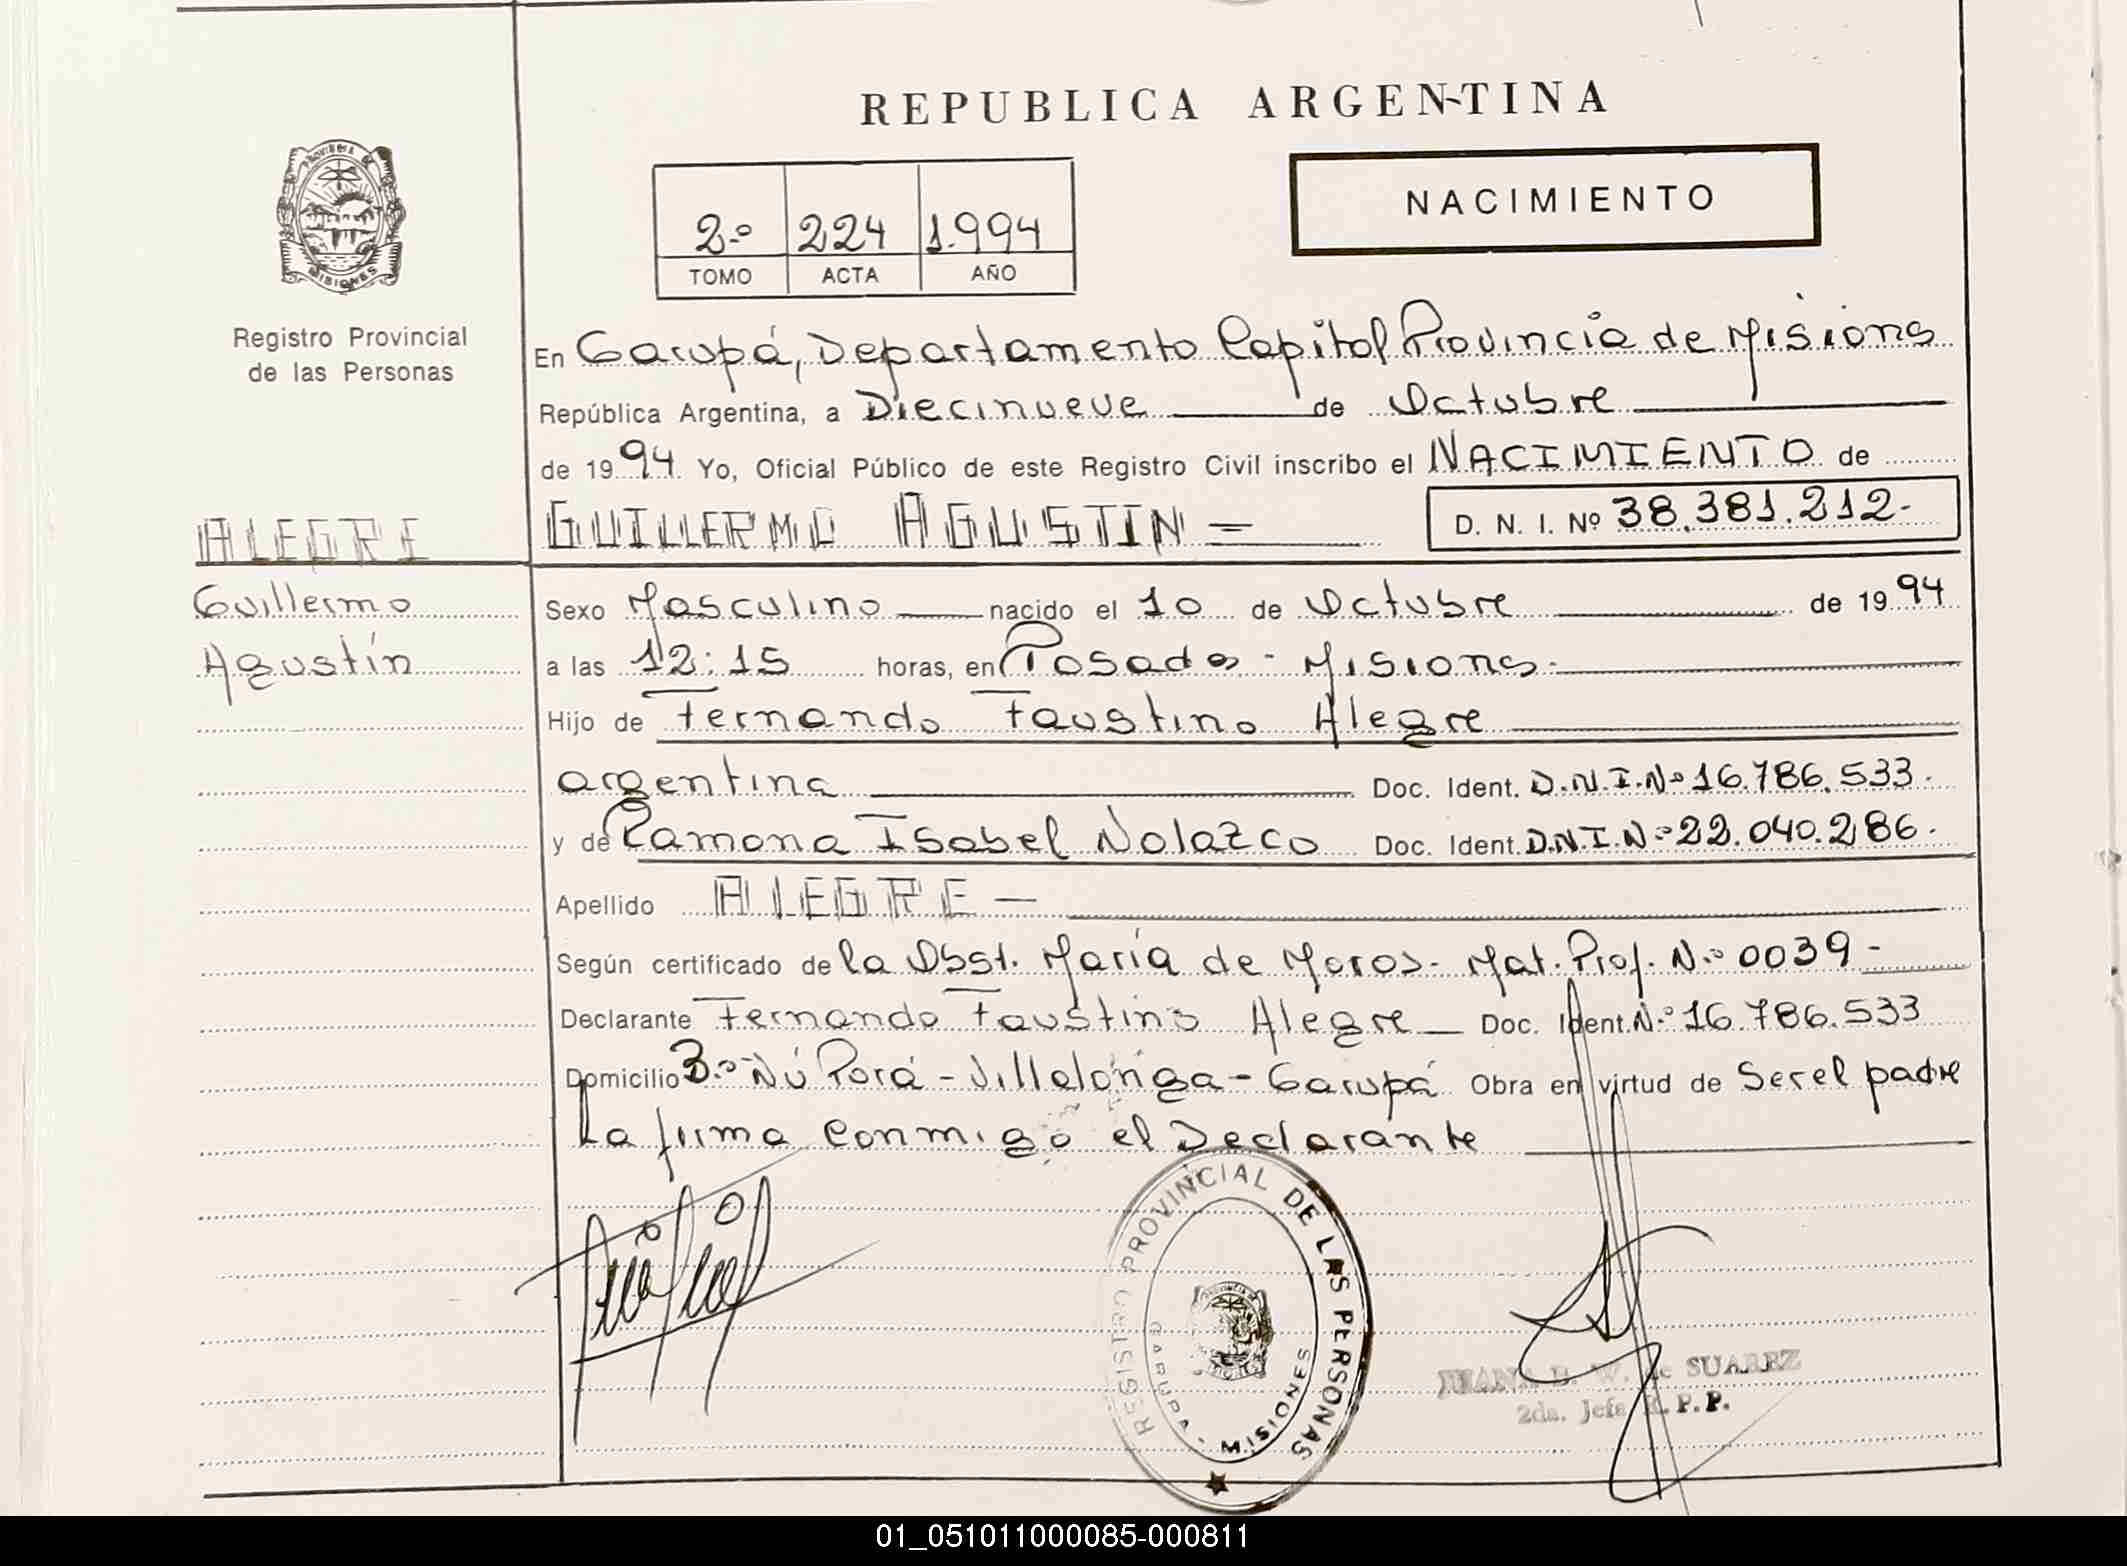 REPUBLICA ARGENTINA
PROVINCIA DE
MISIONES
Registro Provincial
de las Personas
2.º 224 1.994
TOMO ACTA AÑO
NACIMIENTO
En Garupá, Departamento Capital Provincia de Misiones
República Argentina, a Diecinueve de Octubre
de 1994 Yo, Oficial Público de este Registro Civil inscribo el NACIMIENTO de
ALEGRE
GUILLERMO AGUSTIN =
D. N. I. Nº 38.381.212-
Guillermo
Agustín
Sexo Masculino nacido el 10 de Octubre de 1994
a las 12:15 horas, en Posadas - Misiones.
Hijo de Fernando Faustino Alegre
argentina Doc. Ident. D.N.I.Nº 16.786.533.
y de Ramona Isabel Nolazco Doc. Ident. D.N.I.Nº 22.040.286.
Apellido ALEGRE -
Según certificado de la Obst. María de Moros- Mat. Prof. N.º 0039-
Declarante Fernando Faustino Alegre Doc. Ident. N.º 16.786.533
Domicilio B.º Ñú Porá - Villalonga - Garupá Obra en virtud de Ser el padre
La firma conmigo el Declarante
REGISTRO PROVINCIAL DE LAS PERSONAS
GARUPA - MISIONES
JUANA B. W. de SUAREZ
2da. Jefa R.P.P.
01_051011000085-000811